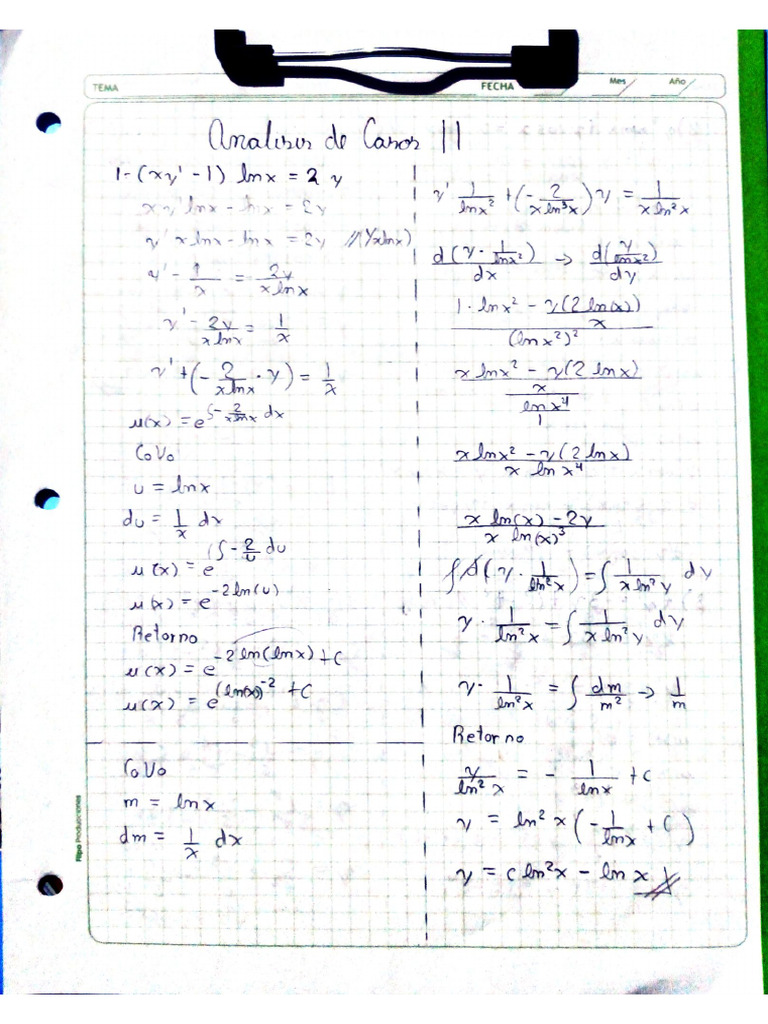 TEMA FECHA Mes Año
Analisis de Casos II
1- (xy' - 1) lnx = 2y
xy' lnx - lnx = 2y
y' xlnx - lnx = 2y //(1/xlnx)
y' - 1/x = 2y/xlnx
y' - 2y/xlnx = 1/x
y' + (- 2/xlnx · y) = 1/x
μ(x) = e^∫- 2/xlnx dx
CoVo
u = lnx
du = 1/x dx
μ(x) = e^(∫- 2/u du
μ(x) = e^-2ln(u)
Retorno
μ(x) = e^-2ln(lnx) + C
μ(x) = e^(ln(x))^-2 + C
CoVo
m = lnx
dm = 1/x dx
y' 1/lnx² + (- 2/xln³x) y = 1/xln²x
d(y · 1/lnx²)/dx → d(y/lnx²)/dy
1 · lnx² - y(2ln(x))/x / (lnx²)²
xlnx² - y(2lnx)/x / lnx⁴/1
xlnx² - y(2lnx)/x lnx⁴
x ln(x) - 2y/x ln(x)³
∫d(y · 1/ln²x) = ∫ 1/xln²y dy
y · 1/ln²x = ∫ 1/xln²y dy
y · 1/ln²x = ∫ dm/m² → 1/m
Retorno
y/ln²x = - 1/lnx + C
y = ln²x (- 1/lnx + C)
y = Cln²x - lnx //
Filpo Producciones